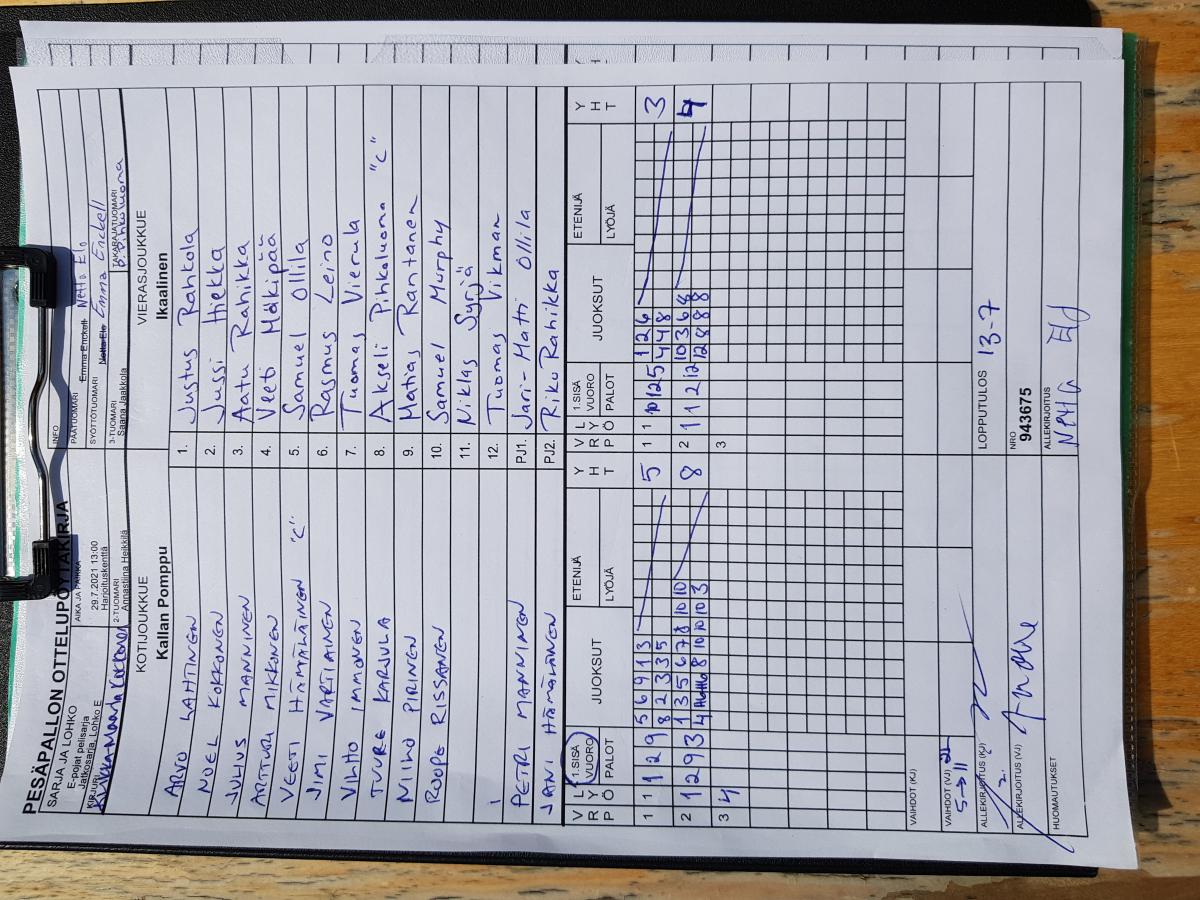 PESÄPALLON OTTELUPÖYTÄKIRJA
SARJA JA LOHKO
E-pojat pelisarja
Jatkosarja, Lohko E
KIRJURI
AIKA JA PAIKKA
29.7.2021 13:00
Harjoituskenttä
2-TUOMARI
Annastiina Heikkilä
INFO
PÄÄTUOMARI
Emma Enckell Netta Elo
SYÖTTÖTUOMARI
Netta Elo Emma Enckell
3-TUOMARI
Saana Jaakkola
TAKARAJATUOMARI
O. Pihkoluoma
KOTIJOUKKUE
Kallan Pomppu
VIERASJOUKKUE
Ikaalinen
ARTO LAHTINEN 1. Justus Rahkola
NUEL KOKKONEN 2. Jussi Hiekka
JULIUS MANNINEN 3. Aatu Rahikka
ARTTURI MIKKONEN 4. Veeti Mäkipää
VEETI HÄMÄLÄINEN "C" 5. Samuel Ollila
JIMI VARTIAINEN 6. Rasmus Leino
VILHO IMMONEN 7. Tuomas Vierula
TUURE KARJULA 8. Akseli Pihkoluoma "C"
NIILO PIRINEN 9. Matias Rantanen
ROOPE RISSANEN 10. Samuel Murphy
11. Niklas Syrjä
12. Tuomas Vikman
PETRI MANNINEN PJ1 Jari-Matti Ollila
JANI HÄMÄLÄINEN PJ2. Riku Rahikka
V R P L Y Ö 1.SISÄ VUORO PALOT JUOKSUT ETENIJÄ LYÖJÄ Y H T V R P L Y Ö 1.SISÄ VUORO PALOT JUOKSUT ETENIJÄ LYÖJÄ Y H T
1 1 1 2 9 5 6 9 1 3 5 1 1 10 12 5 1 2 6 3
8 2 3 3 5 4 4 8
2 1 2 9 3 1 3 5 6 7 8 10 10 8 2 1 1 2 12 10 3 6 8 4
4 8 10 10 10 3 12 8 8 8
3 4 3
VAIHDOT (KJ)
VAIHDOT (VJ)
5→11
ALLEKIRJOITUS (KJ)
ALLEKIRJOITUS (VJ)
HUOMAUTUKSET
LOPPUTULOS 13-7
NRO
943675
ALLEKIRJOITUS
Netta Elo